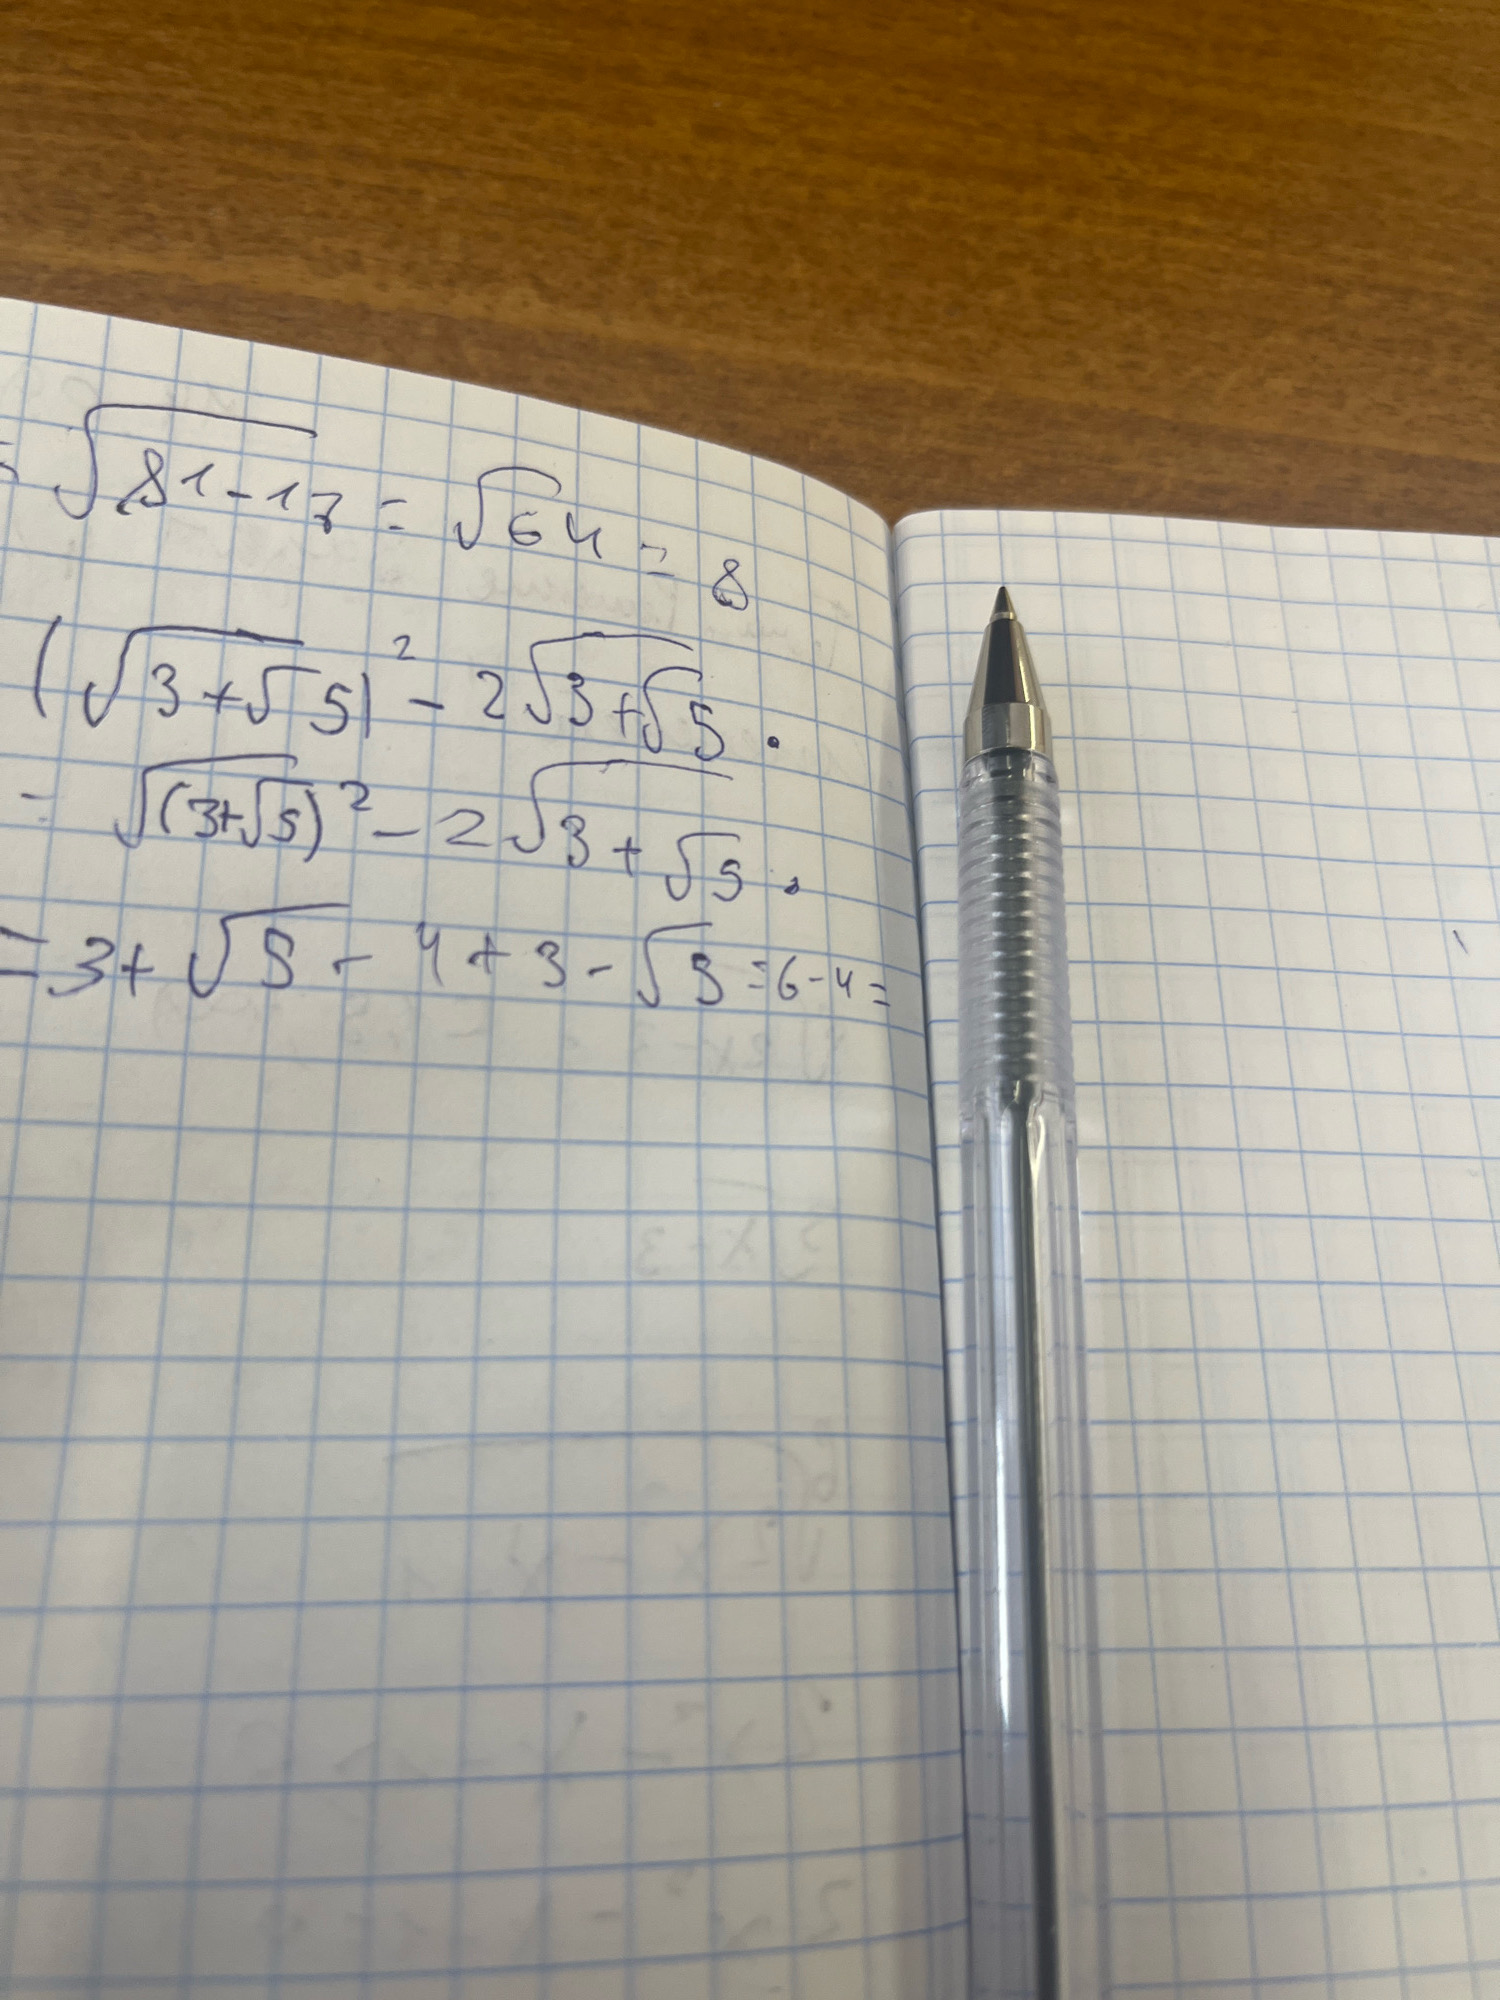 = √81-17 = √64 = 8
(√3+√5)² - 2√3+√5 ·
= √(3+√5)² - 2√3+√5 ·
= 3+√5 - 4+3-√5 = 6-4 =